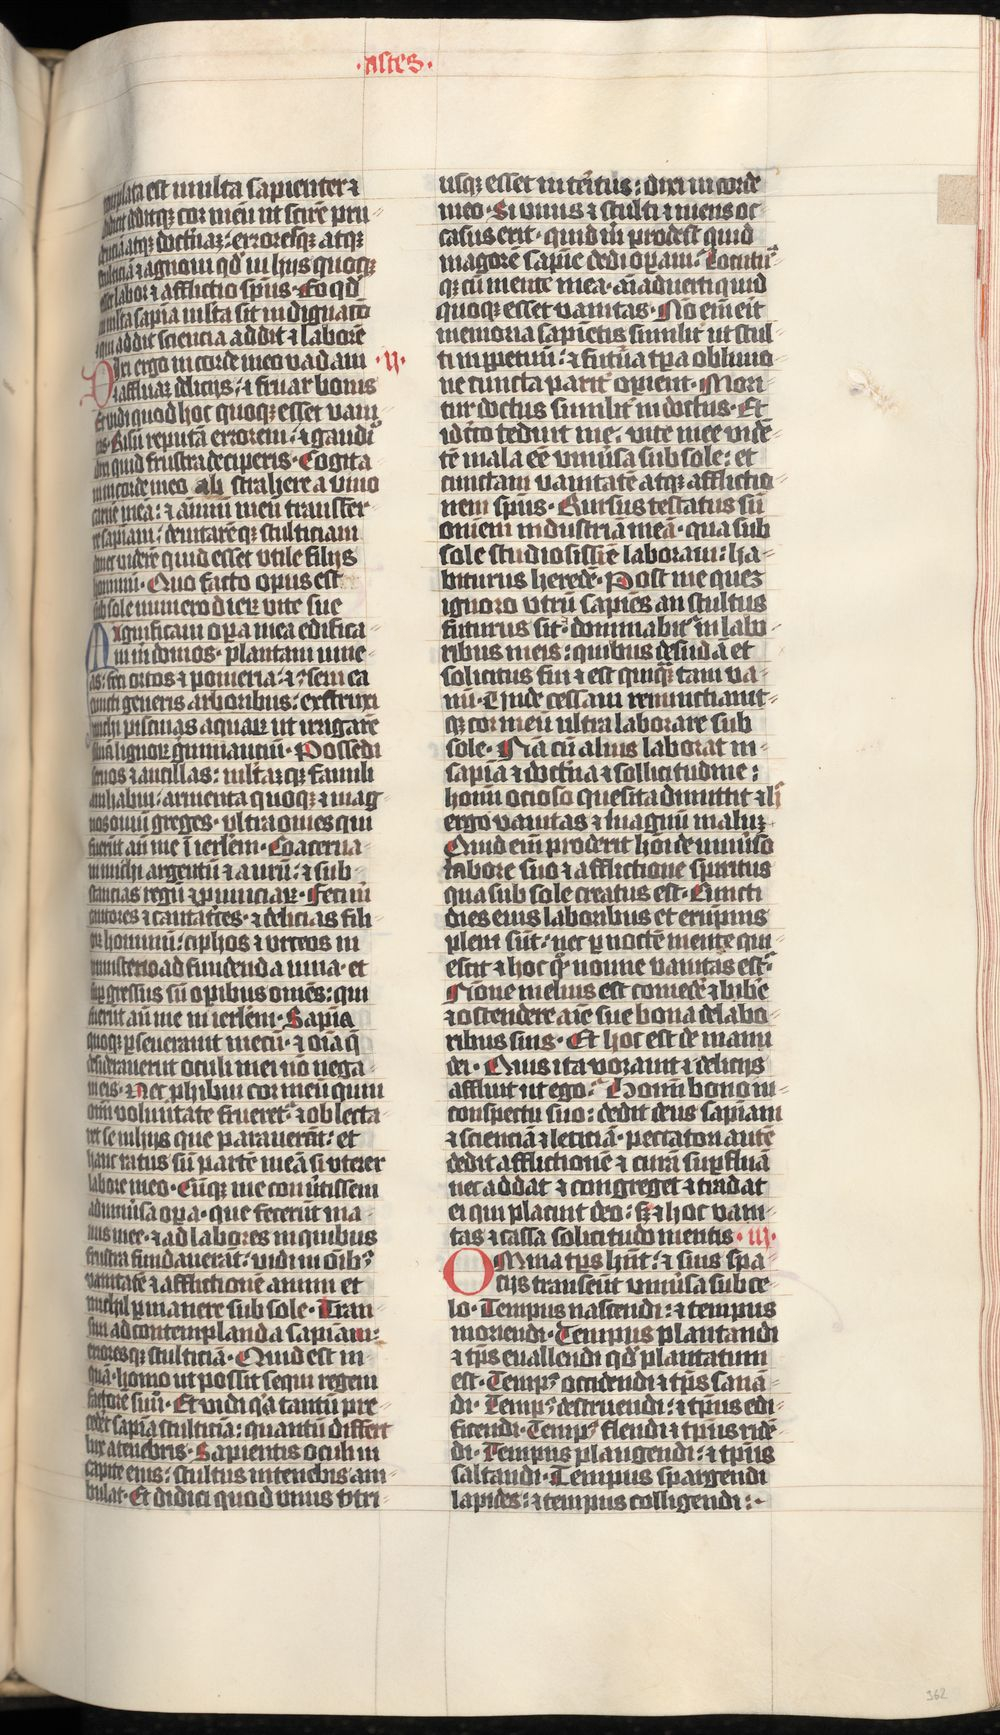 ·astes·
templata est multa sapienter ⁊
didici dediqꝫ cor meū ut scirē pru
denciā atqꝫ doctrinā: erroresqꝫ atqꝫ
stulticiā ⁊ agnoui qd̄ in hijs quoqꝫ
esset labor ⁊ afflictio spūs· Eo qd̄
in multa sapīa multa sit indignacō
⁊ qui addit scienciā addit ⁊ laborē
Dixi ergo in corde meo vadam ·ij·
⁊ affluā delicijs: ⁊ fruar bonis
Et vidi quod hoc quoqꝫ esset vani
tas· Risū reputā errorem: ⁊ gaudiº
dixi quid frustra deciperis· Cogita
ui in corde meo ab strahere a vino
carnē meā: ⁊ aīmū meū transfer
re sapiam: deuitareqꝫ stulticiam
donec viderē quid esset vtile filijs
hominū· Quo facto opus est
sub sole numero dierꝝ vite sue
Magnificaui opera mea edifica
ui m domos· plantaui vine
as: feci ortos ⁊ pomeria: ⁊ seui ea
cuncti generis arboribus: exstruxi
michi piscinas aquarꝝ ut irrigarē
siluā lignorꝝ germinanciū· Possedi
seruos ⁊ ancillas: multāqꝫ famili
am habui: armenta quoqꝫ ⁊ mag
nos ouiū greges· vltra omēs qui
fuerūt an̄ me ī ierl̄em· Coacerua
ui michi argentū ⁊ aurū: ⁊ sub
stancias regū ⁊ prouinciarꝝ· Feci m
cantores ⁊ cantatrices· ⁊ delicias fili
orꝝ hominū: ciphos ⁊ vrceos in
ministerio ad fundenda vina· et
supergressus sū opibus omēs: qui
fuerūt an̄ me in ierl̄em· Sapīa
quoqꝫ perseuerauit mecū· ⁊ oīa q̄
desiderauerūt oculi mei nō nega
ui eis· Nec phibui cor meū quin
omī voluntate frueret᷑: ⁊ oblecta
ret se in hijs que parauerā: et
hanc ratus sū partē meā si vterer
labore meo· Cūqꝫ me cōuertissem
ad vniuersa opera· que fecerūt ma
nus mee· ⁊ ad labores in quibus
frustra sudauerā: vidi in oībꝫ
vanitatē ⁊ afflictionē animi et
nichil permanere sub sole· Tran
siui ad contemplanda sapiam:
erroresqꝫ ⁊ stulticiā· Quid est in
quā· homo ut possit sequi regem
factorē suū· Et vidi qꝛ tantū pre
cedet sapīa stulticiā: quantū differt
lux a tenebris· Sapientis oculi in
capite eius: stultus in tenebris am
bulat· Et didici quod vnus vtri
usqꝫ esset interitus: dixi in corde
meo· Si vnus ⁊ stulti ⁊ meus oc
casus erit· quid m̄ prodest quid
magorē sapie dedi operam: Locutuˢ
qꝫ cū mente mea· aīaduerti quid
quoqꝫ esset vanitas· Nō em̄ erit
memoria sapiētis similit᷑ ut stul
ti in ppetuū: ⁊ futura tpa obliuio
ne cuncta parit᷑ opient· Mori
tur doctus similit᷑ indoctus· Et
idcirco teduit me: vite mee vidē
tē mala eē vniūsa sub sole: et
cunctam vanitatē atqꝫ afflictio
nem spūs· Rursus testatus sū
omēm industriā meā· qua sub
sole studiosissīe laboraui: ha
biturus heredē· Post me quē
ignoro vtrū sapiēs an stultus
futurus sit· dominabit᷑ in labo
ribus meis: quibus desudā et
solicitus fui ⁊ est quicq̄ tam va
nū· Unde cessaui renunciauit
qꝫ cor meū ultra laborare sub
sole· Nā cū alius laborat in
sapīa ⁊ doctrīa ⁊ sollicitudine:
homī ocioso quesita dimittit ⁊ h
ergo vanitas ⁊ magnū malū
Quid em̄ proderit hōi de vniuso
labore suo ⁊ afflictione spiritus
qua sub sole creatus est· Cuncti
dies eius laboribus et erūpnis
pleni sūt: nec per noctē mente qui
escit ⁊ hoc q̄ nonne vanitas est:
Nōne melius est comedē ⁊ bibē
⁊ ostendere aīe sue bona de labo
ribus suis· Et hoc est de manu
dei· Quis ita vorauit ⁊ delicijs
affluit ut ego: Homī bono in
conspectu suo: dedit deus sapiam
⁊ scienciā ⁊ leticiā· peccatori autē
dedit afflictionē ⁊ curā supfluā
ut addat ⁊ congreget ⁊ tradat
ei qui placuit deo: sꝫ ⁊ hoc vani
tas ⁊ cassa solicitudo mentis ·iij·
Omnia tps hn̄t: ⁊ suis spa
cijs transeūt vniūsa sub ce
lo· Tempus nascendi: ⁊ tempus
moriendi· Tempus plantandi
⁊ tps̄ euallendi qd̄ plantatum
est· Tempꝰ occidendi ⁊ tps̄ sanā
di· Tempꝰ destruendi: ⁊ tpūs edi
ficendi· Tempꝰ flendi ⁊ tpūs ridē
di· Tempus plangendi: ⁊ tpūs
saltandi· Tempus spargendi
lapides: ⁊ tempus colligendi:·
362